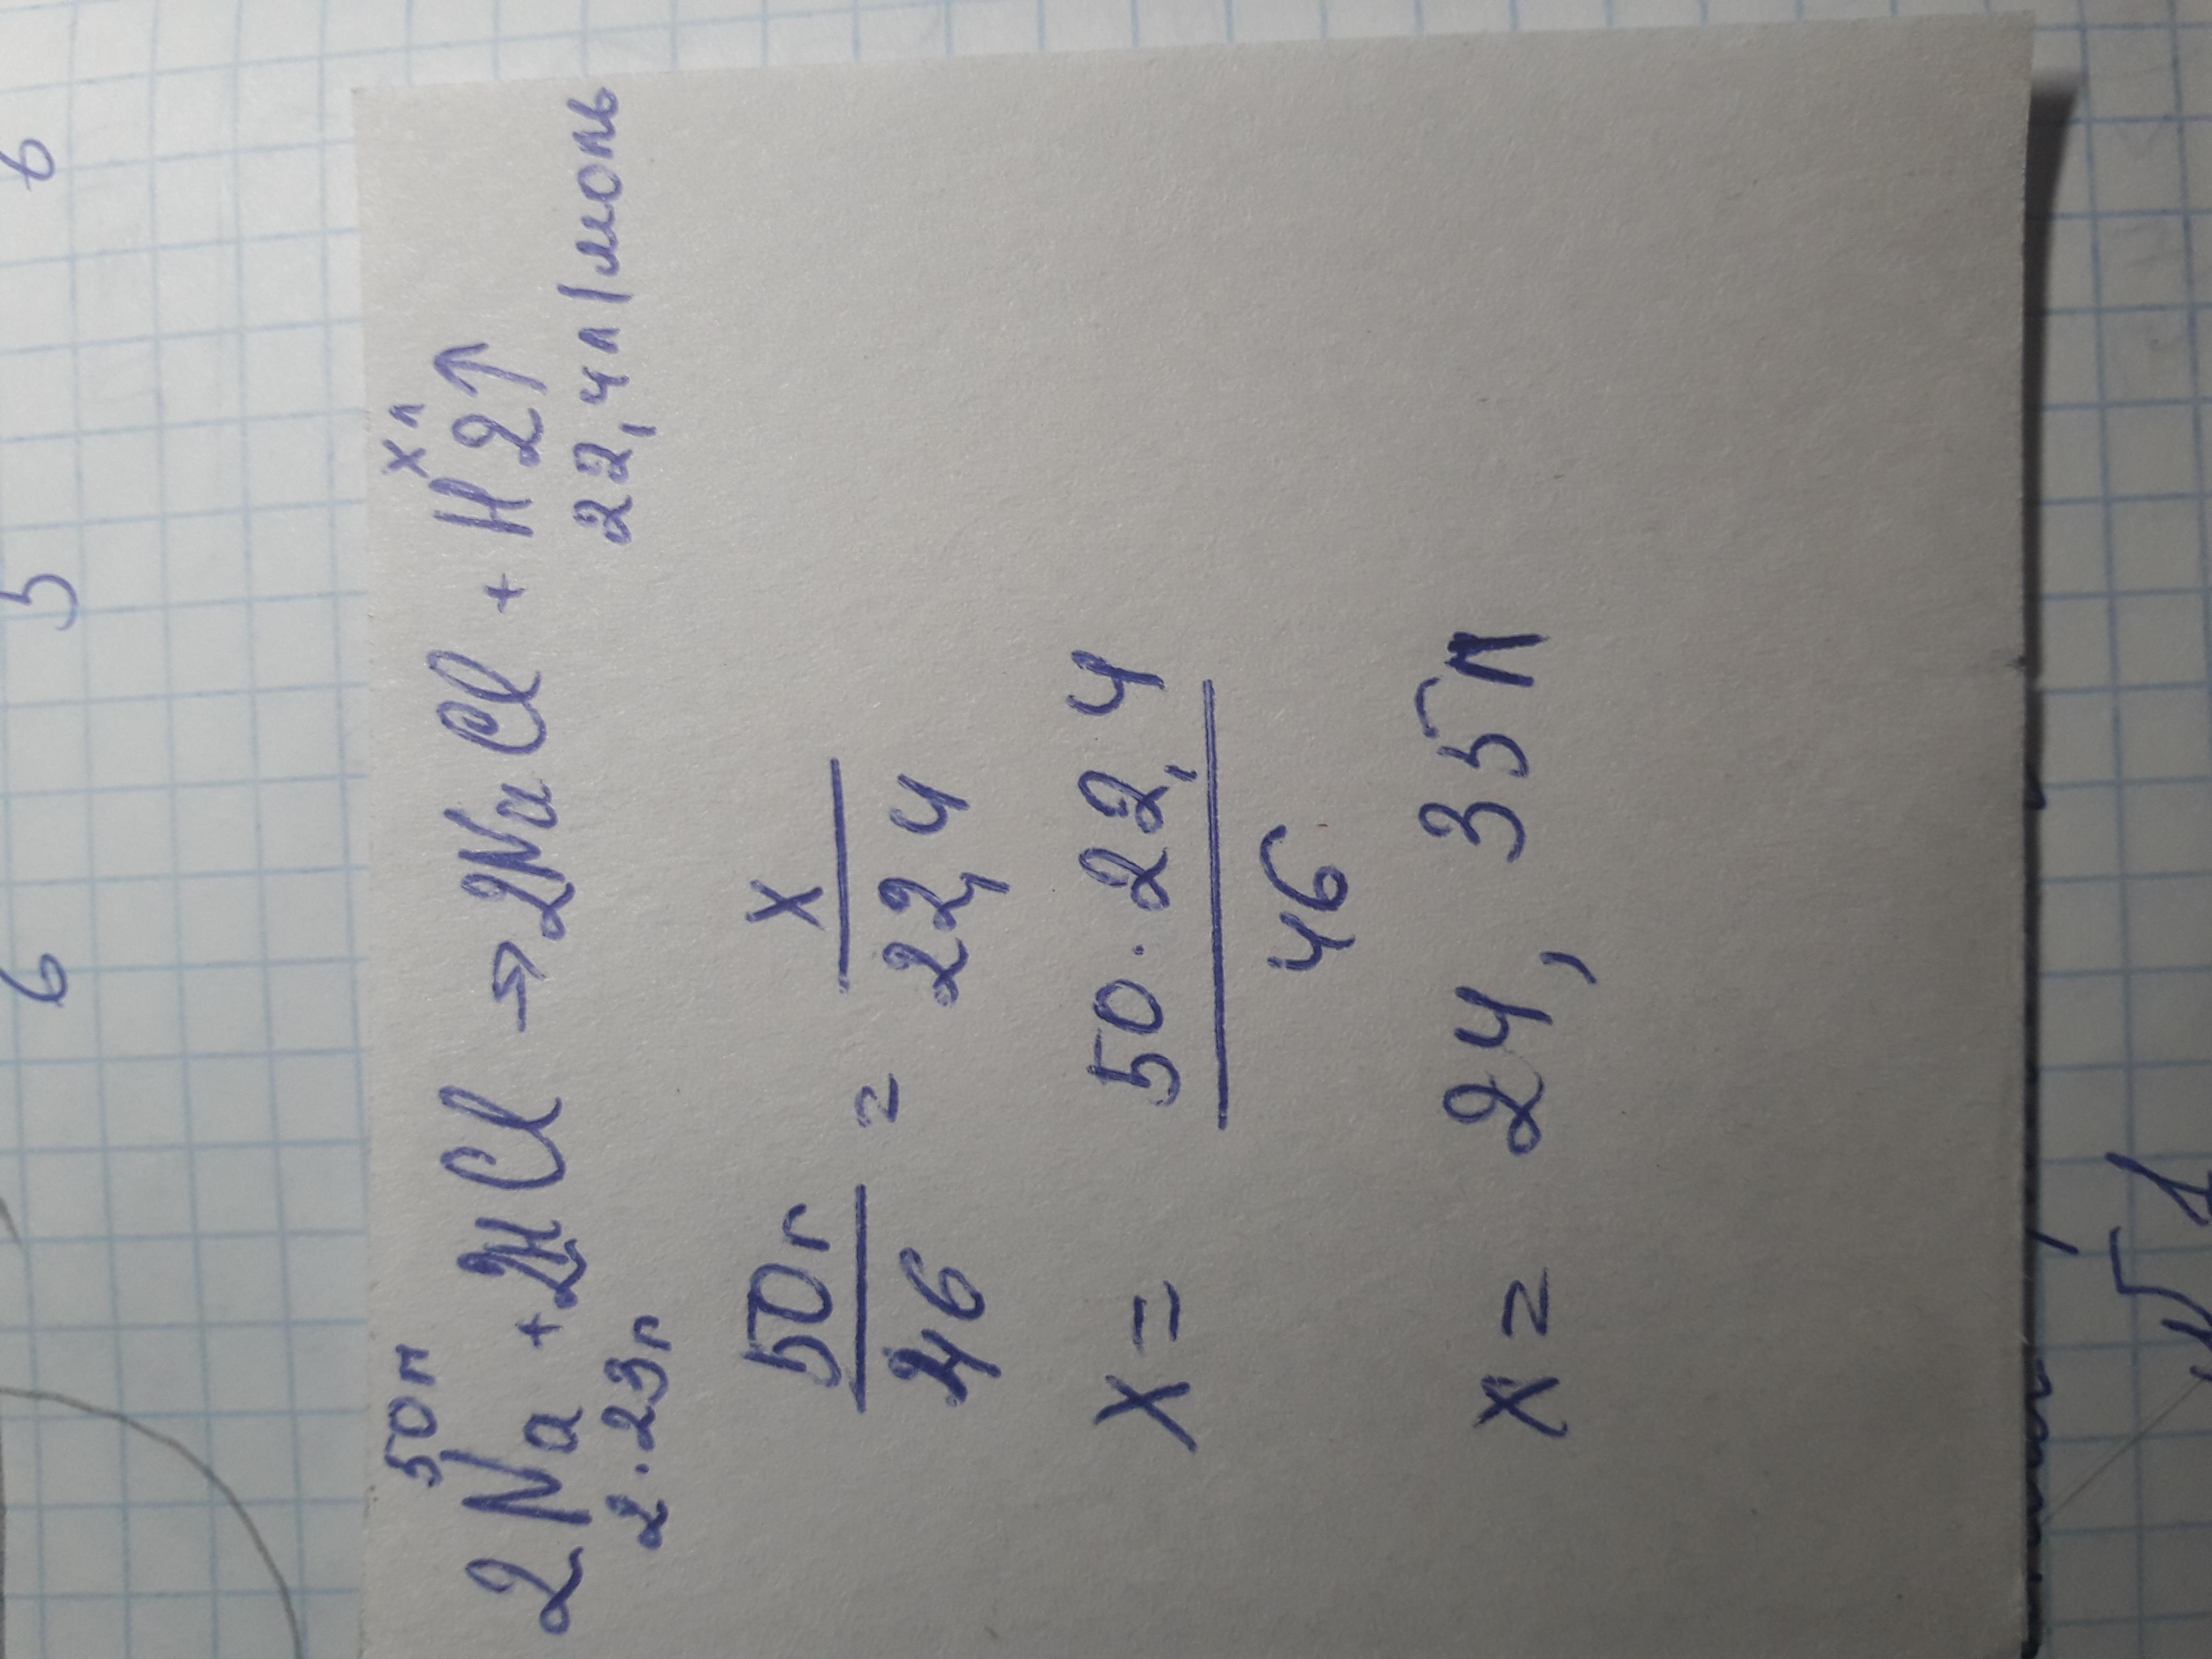 6 5 6
50г xл
2Na + 2HCl → 2NaCl + H2↑
2·23г 22,4л/моль
50г/46 = x/22,4
x = 50·22,4/46
x = 24,35л